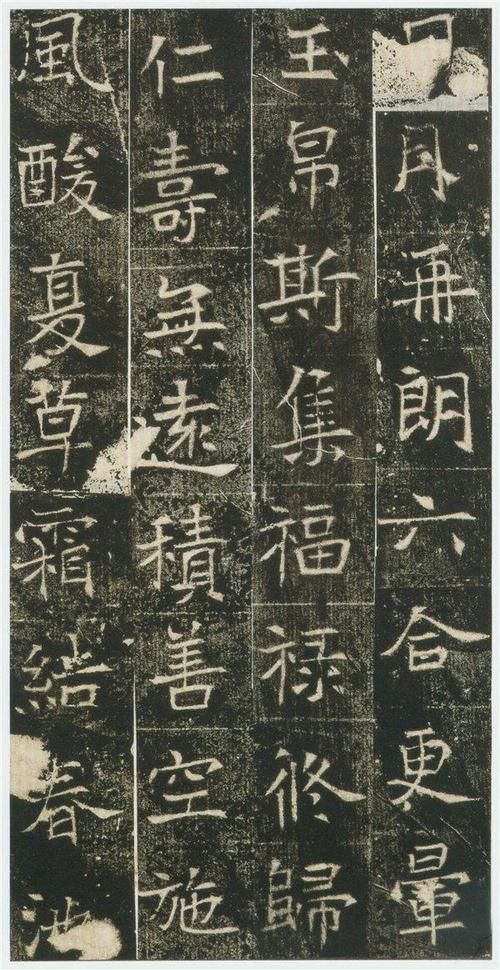 月再朗六合更暈
玉帛斯集福祿終歸
仁壽無遠積善空施
風酸夏草霜結春池